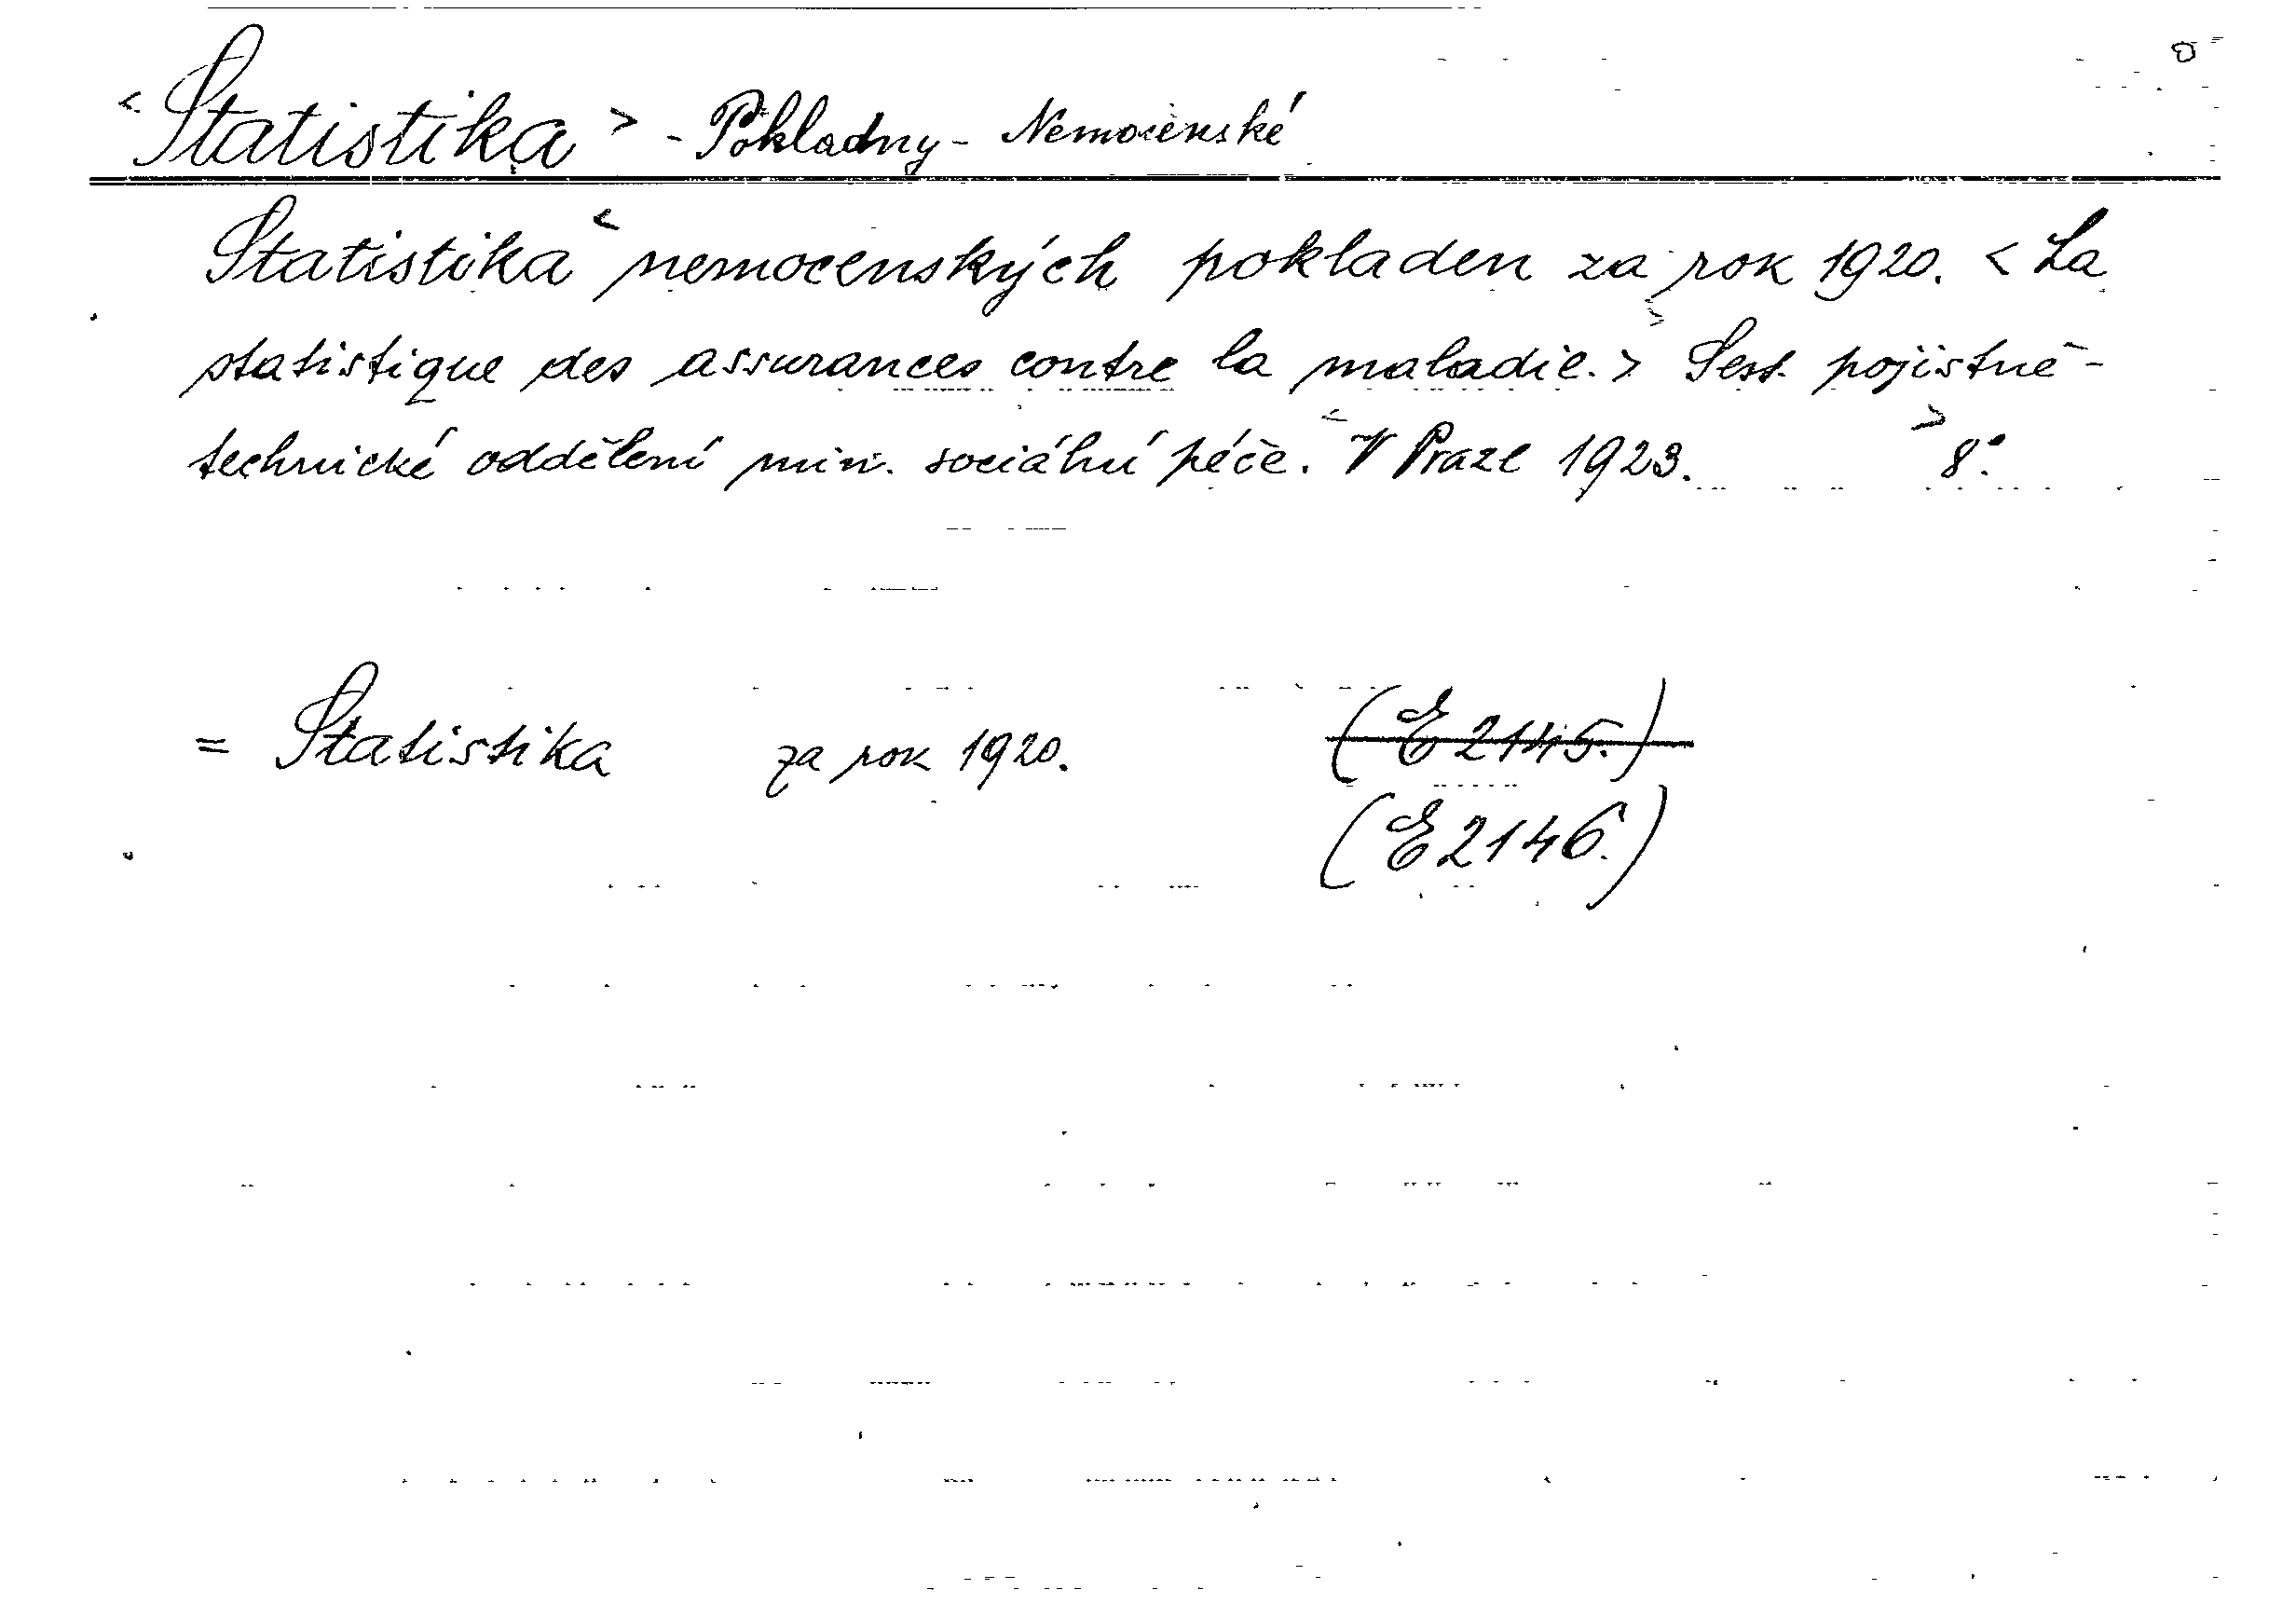 < Statistika > - Pokladny - Nemocenské
Statistika < nemocenských pokladen za rok 1920. < La
statistique des assurances contre la maladie. > Sest. pojistně-
technické oddělení min. sociální péče. < V Praze 1923. > 8°.
= Statistika za rok 1920. (E 2145.)
(E 2146.)